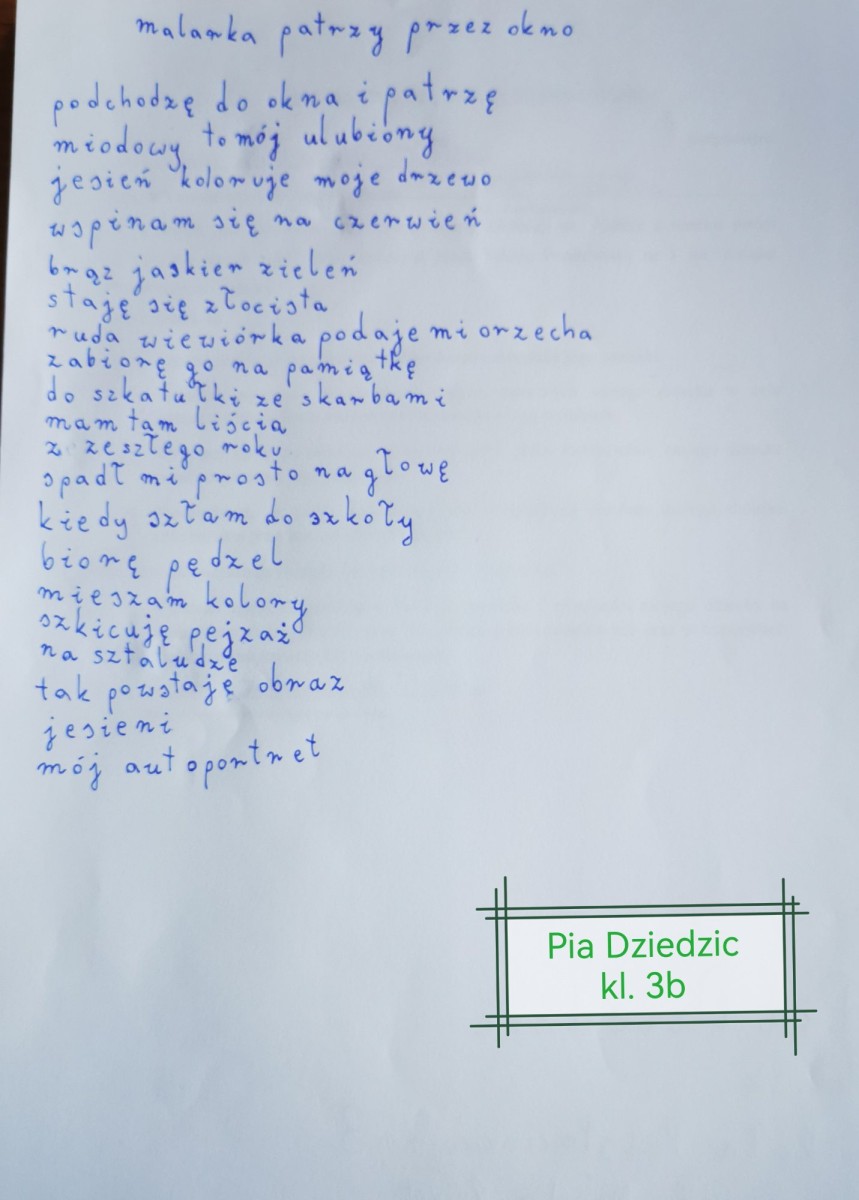 malarka patrzy przez okno
podchodzę do okna i patrzę
miodowy to mój ulubiony
jesień koloruje moje drzewo
wspinam się na czerwień
brąz jaskier zieleń
staję się złocista
ruda wiewiórka podaje mi orzecha
zabiorę go na pamiątkę
do szkatułki ze skarbami
mam tam liścia
z zeszłego roku
spadł mi prosto na głowę
kiedy szłam do szkoły
biorę pędzel
mieszam kolory
szkicuję pejzaż
na sztaludze
tak powstaję obraz
jesieni
mój autoportret
Pia Dziedzic
kl. 3b